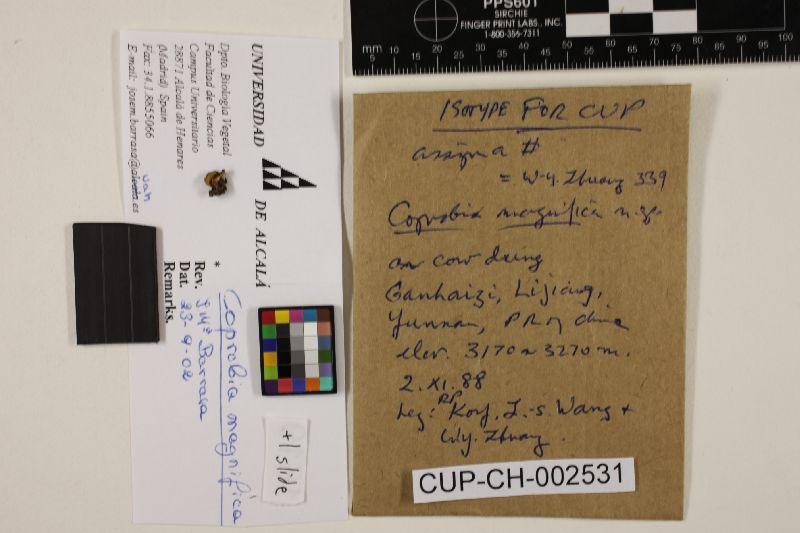 PPS601
SIRCHIE
FINGER PRINT LABS., INC.
1-800-356-7311
mm 5 10 15 20 25 30 35 40 45 50 55 60 65 70 75 80 85 90 95 100
ISOTYPE FOR CUP
assign a #
= W-y. Zhuang 339
Coprobia magnifica n. sp.
on cow dung
Ganhaizi, Lijiang,
Yunnan, PR of China
elev. 3170 ~ 3270 m.
2. XI. 88
Leg: RP Korf, L.-s. Wang +
W.y. Zhuang.
CUP-CH-002531
UNIVERSIDAD DE ALCALÁ
Dpto. Biología Vegetal
Facultad de Ciencias
Campus Universitario
28871 Alcalá de Henares
(Madrid) Spain
Fax: 34.1.8855066
E-mail: josem.barrasa@alcala.es
uah
* Coprobia magnifica
Rev. J Mª Barrasa
Dat. 23-9-02
Remarks.
+1 slide